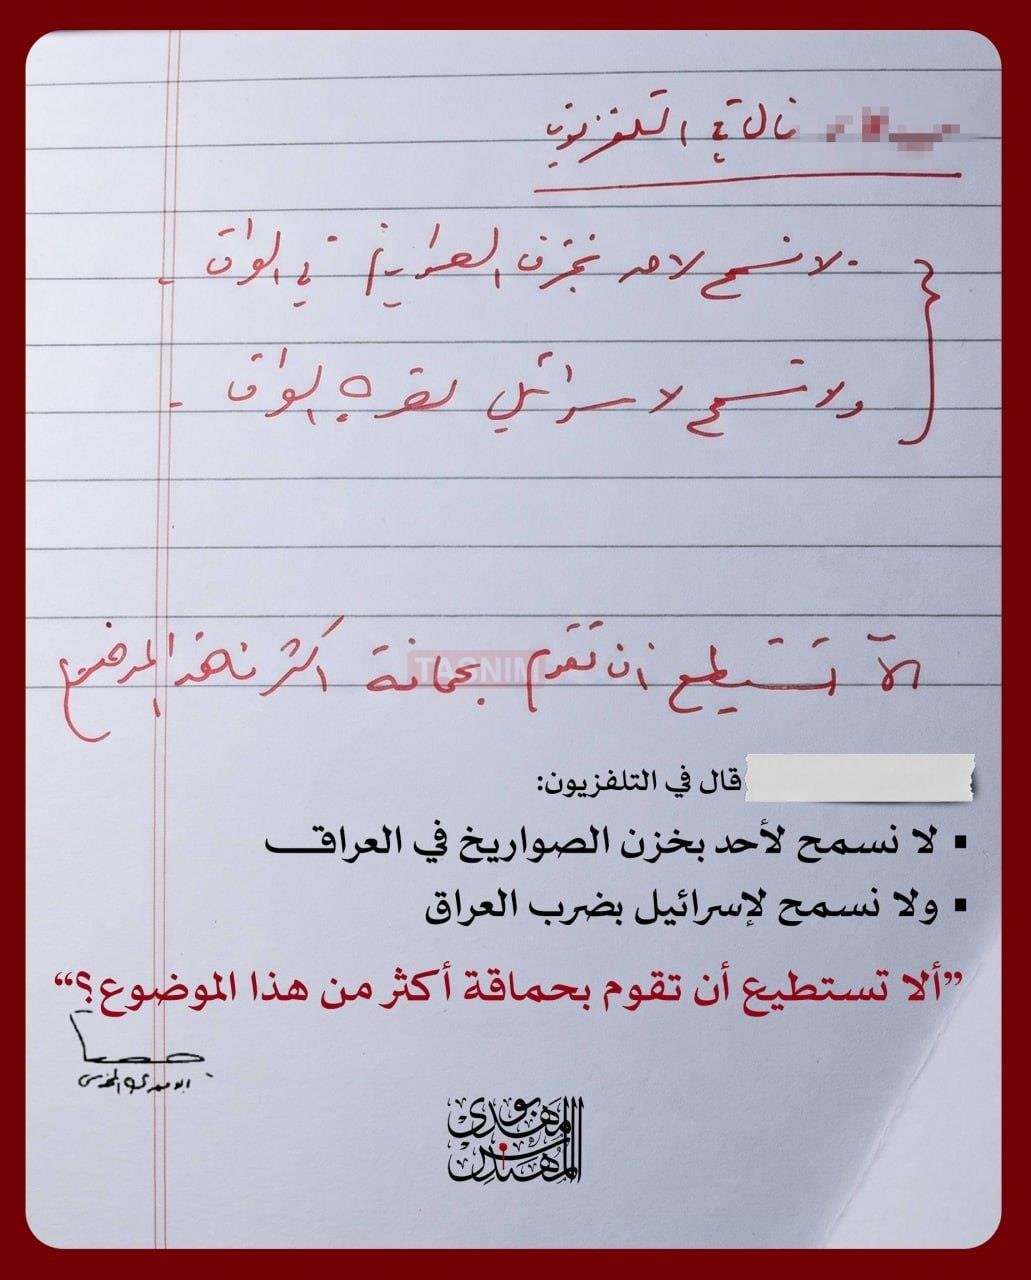 قال في التلفزيون
. لا نسمح لاحد بخزن الصواريخ في العراق .
ولا نسمح لاسرائيل بضرب العراق .
ألا تستطيع ان تقوم بحماقة اكثر من هذا الموضوع
TASNIM
قال في التلفزيون:
▪ لا نسمح لأحد بخزن الصواريخ في العراق
▪ ولا نسمح لإسرائيل بضرب العراق
”ألا تستطيع أن تقوم بحماقة أكثر من هذا الموضوع؟“
ابو مهدي المهندس
ابومهدی المهندس